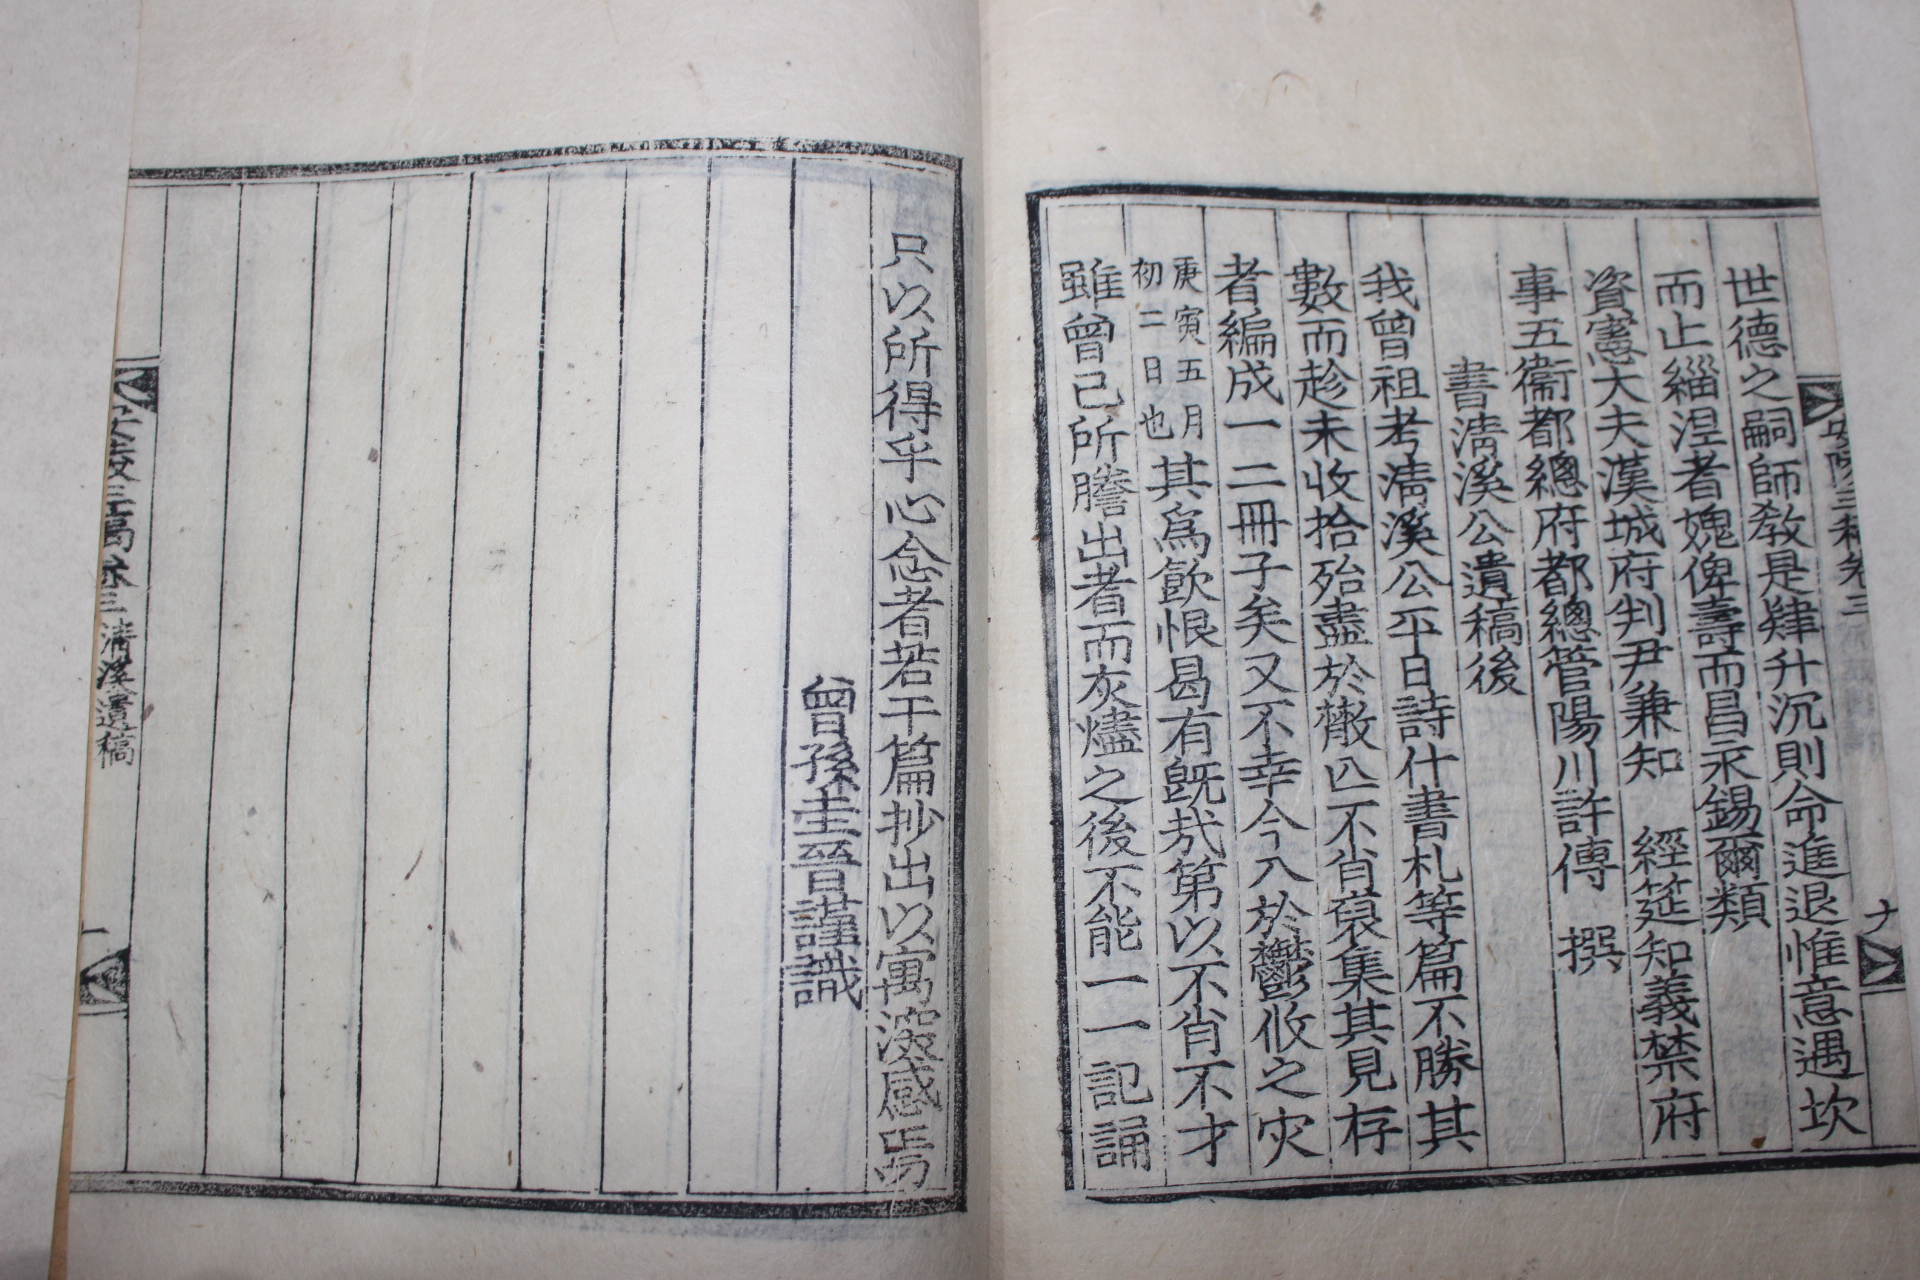 世德之嗣師敎是肄升沉則命進退惟意遇坎
而止緇涅者媿俾壽而昌永錫爾類
資憲大夫漢城府判尹兼知 經筵知義禁府
事五衛都總府都總管陽川許傳 撰
書淸溪公遺稿後
我曾祖考淸溪公平日詩什書札等篇不勝其
數而趁未收拾殆盡於散亾不肖裒集其見存
者編成一二冊子矣又不幸今入於鬱攸之灾
庚寅五月
初二日也
其爲飮恨曷有旣㢤第以不肖不才
雖曾己所謄出者而灰燼之後不能一一記誦
只以所得乎心念者若干篇抄出以寓深感焉
曾孫圭晉謹識
三稿卷三 淸溪公遺稿